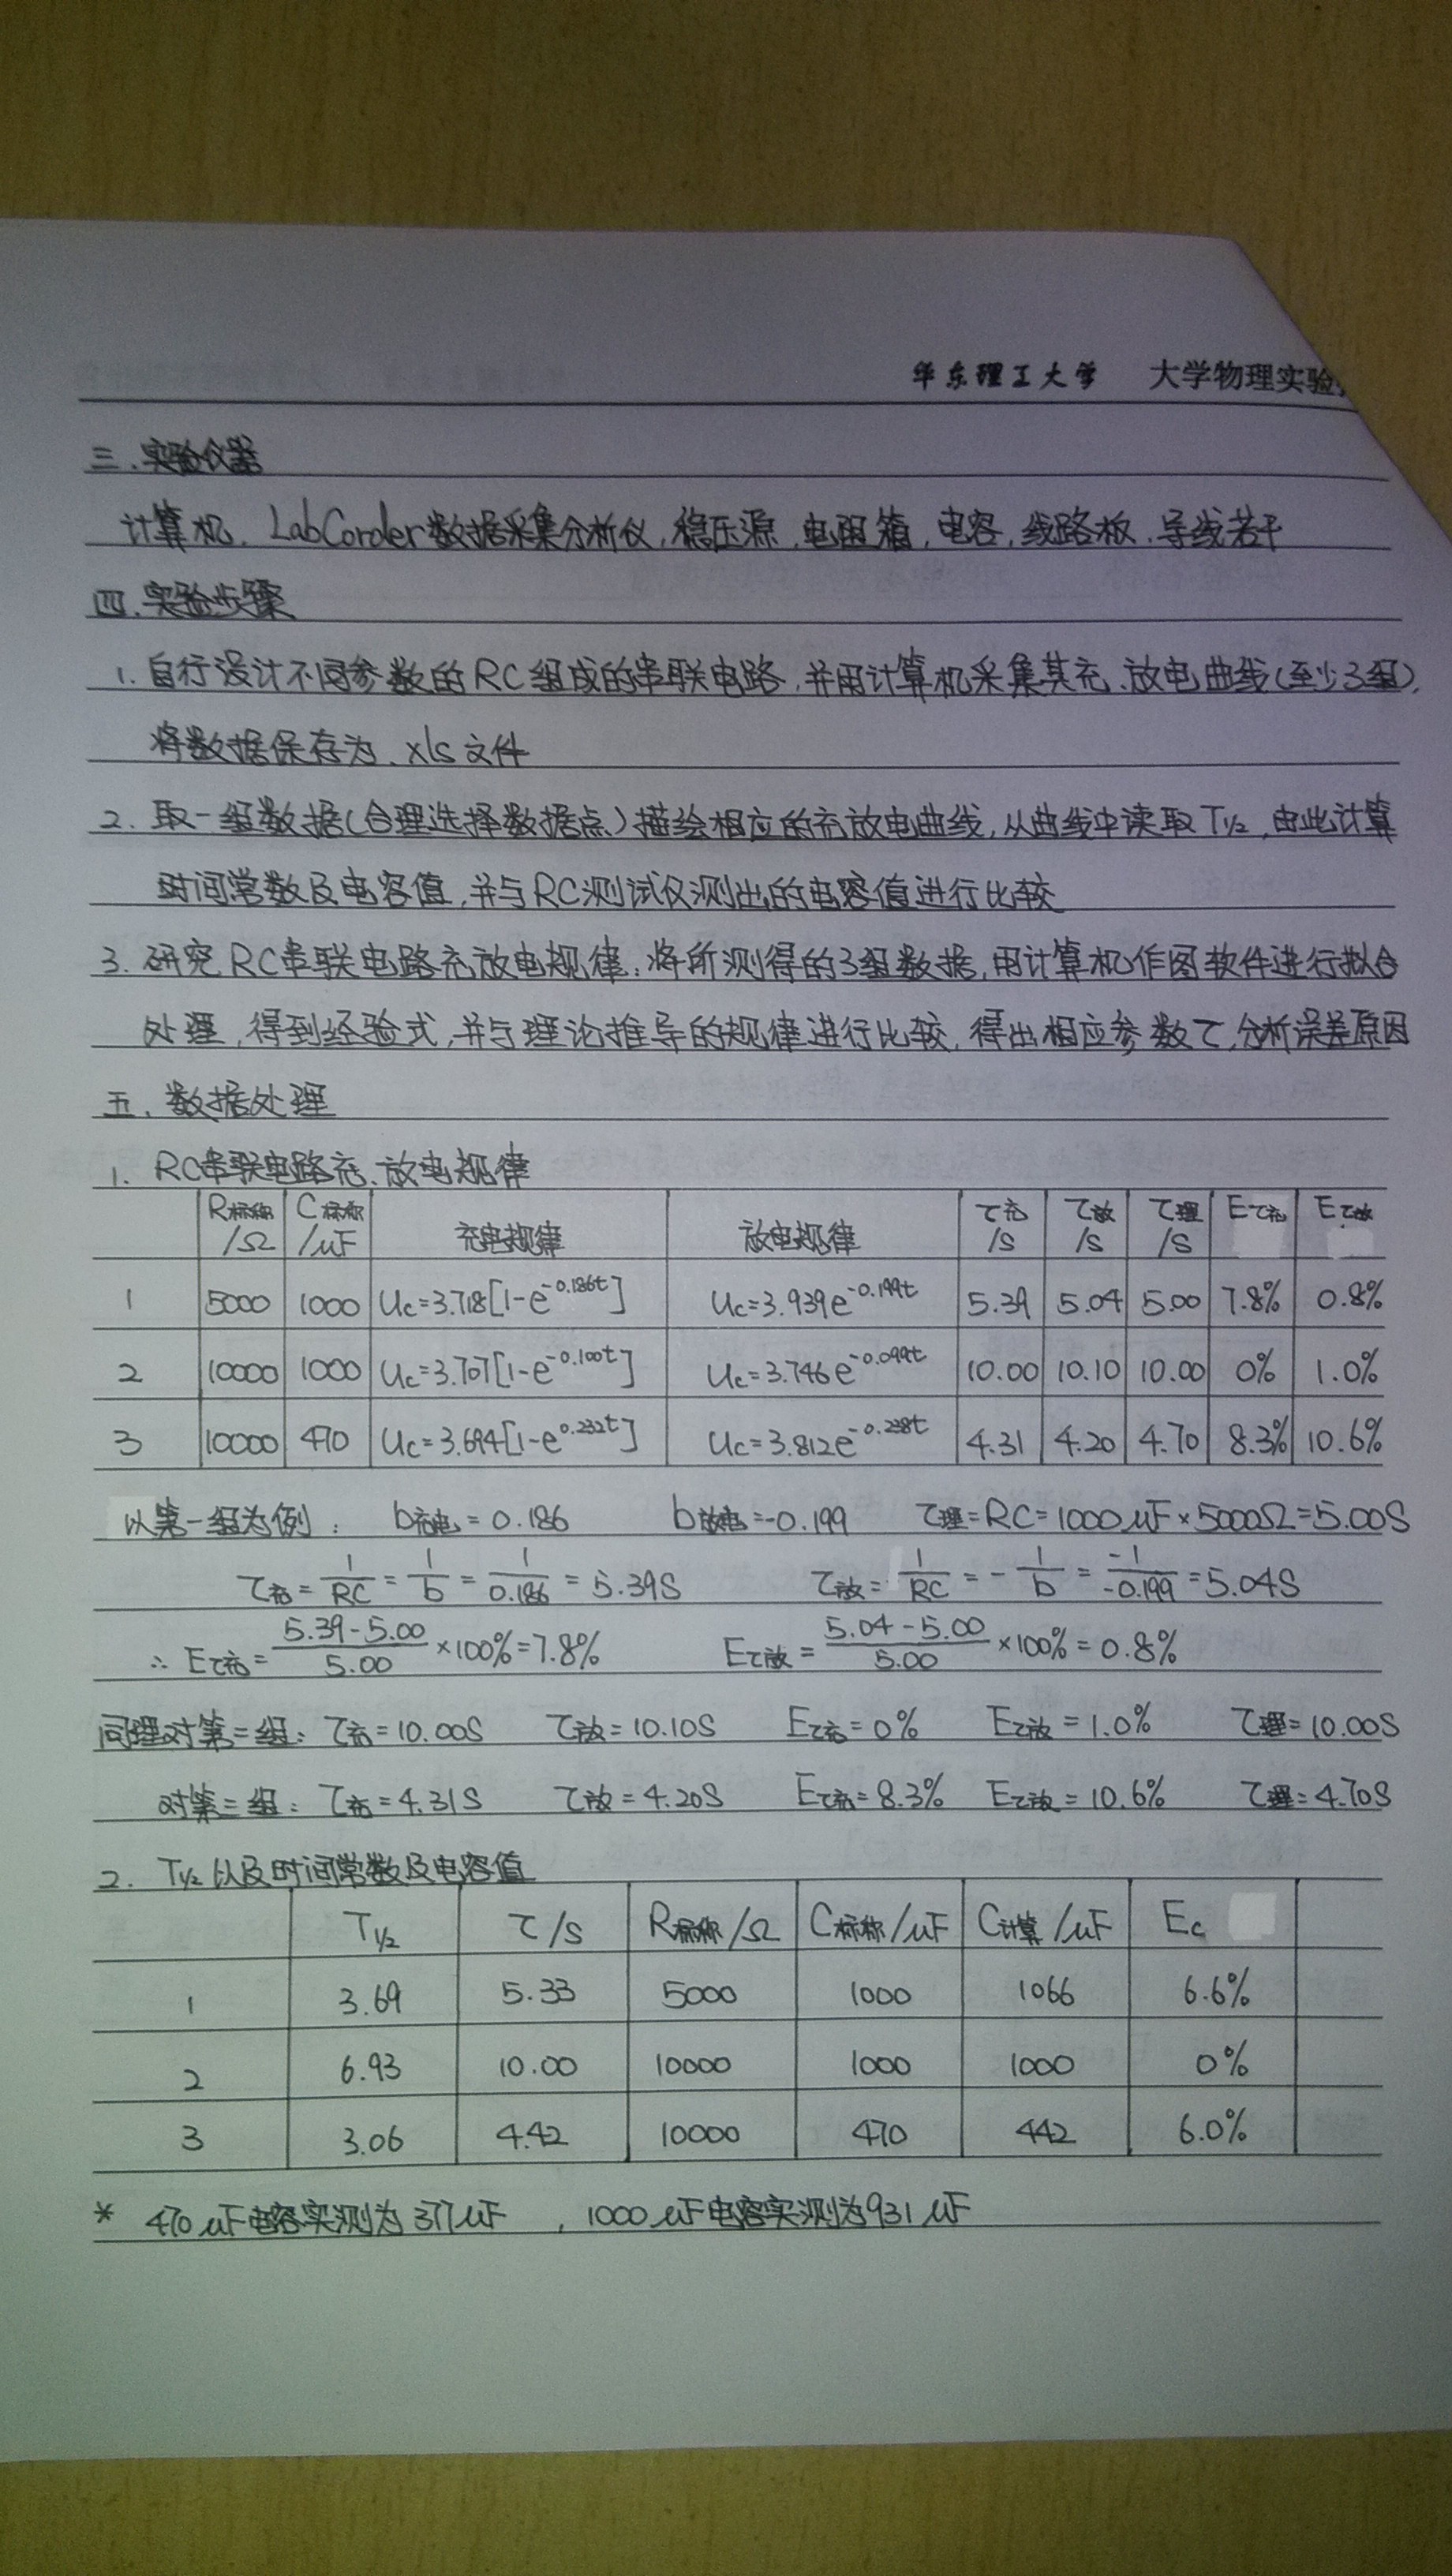 华东理工大学 大学物理实验
三.实验仪器
计算机. LabCorder数据采集分析仪,稳压源,电阻箱,电容,线路板,导线若干
四.实验步骤
1.自行设计不同参数的RC组成的串联电路,并用计算机采集其充.放电曲线(至少3组),
将数据保存为.xls文件
2.取一组数据(合理选择数据点)描绘相应的充放电曲线,从曲线中读取T½,由此计算
时间常数及电容值,并与RC测试仪测出的电容值进行比较
3.研究RC串联电路充放电规律:将所测得的3组数据,用计算机作图软件进行拟合
处理,得到经验式,并与理论推导的规律进行比较,得出相应参数τ,分析误差原因
五.数据处理
1. RC串联电路充.放电规律
R标称/Ω C标称/μF 充电规律 放电规律 τ充/S τ放/S τ理/S Eτ充 Eτ放
1 5000 1000 Uc=3.718[1-e^-0.186t] Uc=3.939e^-0.199t 5.39 5.04 5.00 7.8% 0.8%
2 10000 1000 Uc=3.707[1-e^-0.100t] Uc=3.746e^-0.099t 10.00 10.10 10.00 0% 1.0%
3 10000 470 Uc=3.694[1-e^0.232t] Uc=3.812e^-0.238t 4.31 4.20 4.70 8.3% 10.6%
以第一组为例: b充电=0.186 b放电=-0.199 τ理=RC=1000μF×5000Ω=5.00S
τ充=1/RC=1/b=1/0.186=5.39S τ放=1/RC=-1/b=-1/-0.199=5.04S
∴Eτ充=(5.39-5.00)/5.00×100%=7.8% Eτ放=(5.04-5.00)/5.00×100%=0.8%
同理对第二组:τ充=10.00S τ放=10.10S Eτ充=0% Eτ放=1.0% τ理=10.00S
对第三组:τ充=4.31S τ放=4.20S Eτ充=8.3% Eτ放=10.6% τ理=4.70S
2. T½以及时间常数及电容值
T½ τ/S R标称/Ω C标称/μF C计算/μF Ec
1 3.69 5.33 5000 1000 1066 6.6%
2 6.93 10.00 10000 1000 1000 0%
3 3.06 4.42 10000 470 442 6.0%
* 470μF电容实测为377μF ,1000μF电容实测为931μF